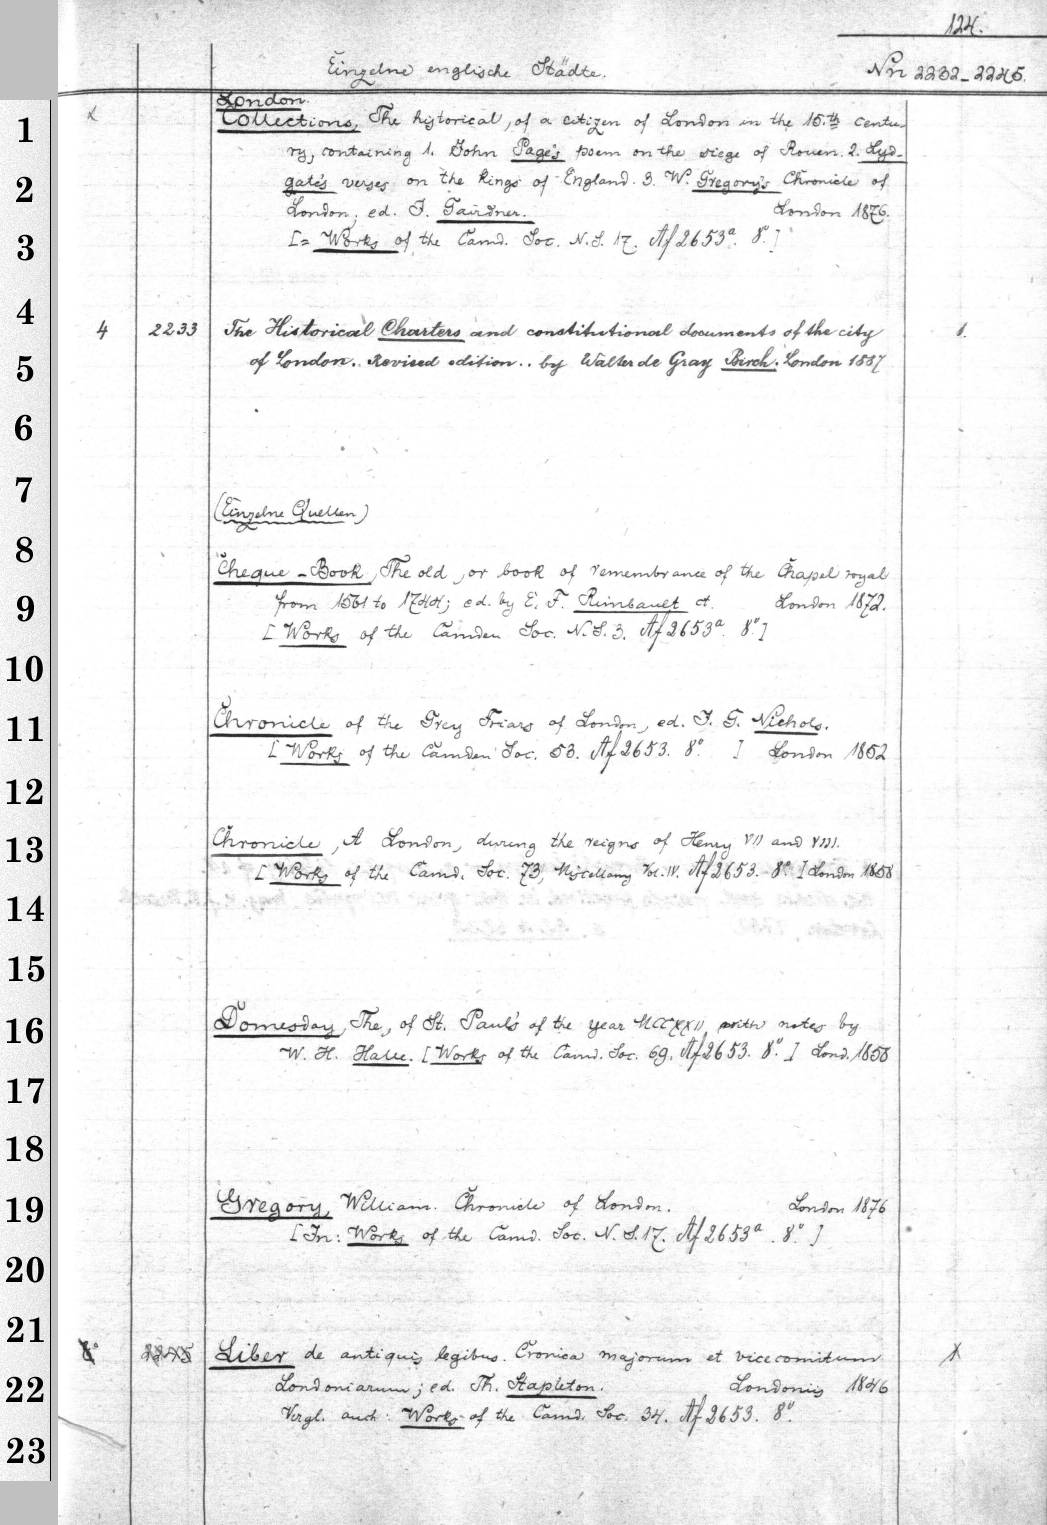 124.
Einzelne englische Städte. Nrn 2232-2245.
London.
Collections, The historical, of a citizen of London in the 15.th centu-
ry, containing 1. John Page's poem on the siege of Rouen. 2. Lyd-
gate's verses on the kings of England. 3. W. Gregory's Chronicle of
London; ed. J. Gairdner. London 1876.
[= Works of the Camd. Soc. N.S. 17. Af 2653a. 8o.]
4 2233 The Historical Charters and constitutional documents of the city 1.
of London. Revised edition.. by Walter de Gray Birch. London 1887
(Einzelne Quellen)
Cheque-Book, The old, or book of remembrance of the Chapel royal
from 1561 to 1744; ed. by E. F. Rimbault ct. London 1872.
[Works of the Camden Soc. N.S. 3. Af 2653a. 8o.]
Chronicle of the Grey Friars of London, ed. J. G. Nichols.
[Works of the Camden Soc. 53. Af 2653. 8o ] London 1852
Chronicle, A London, during the reigns of Henry VII and VIII.
[Works of the Camd. Soc. 73, Miscellany Vol. IV. Af 2653. 8o.] London 1858
Domesday, The, of St. Paul's of the year MCCXXII, with notes by
W. H. Hale. [Works of the Camd. Soc. 69. Af 2653. 8o.] Lond. 1858
Gregory, William. Chronicle of London. London 1876
[In: Works of the Camd. Soc. N. S. 17. Af 2653a. 8o. ]
8o 2245 Liber de antiquis legibus. Cronica majorum et vicecomitum 1
Londoniarum; ed. Th. Stapleton. Londoniis 1846
Vergl. auch: Works of the Camd. Soc. 34. Af 2653. 8o.
1
2
3
4
5
6
7
8
9
10
11
12
13
14
15
16
17
18
19
20
21
22
23